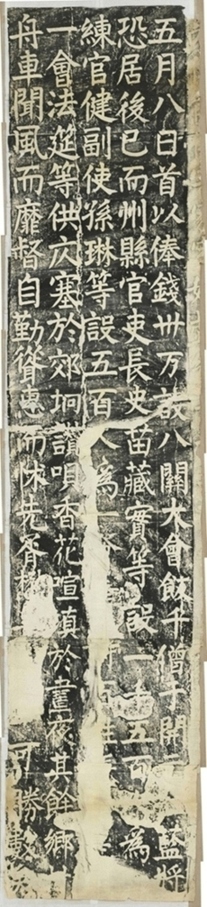 五月八日首以俸錢卅万設八關大會飯千僧于開 藍將
恐居後已而州縣官吏長史苗藏實等設一 五百 為
練官健副使孫琳等設五百人為
一會法筵等供仄塞於郊坰讚唄香花喧填於晝夜其餘鄉
舟車聞風而靡督自勤脊 而休先脊 勝數